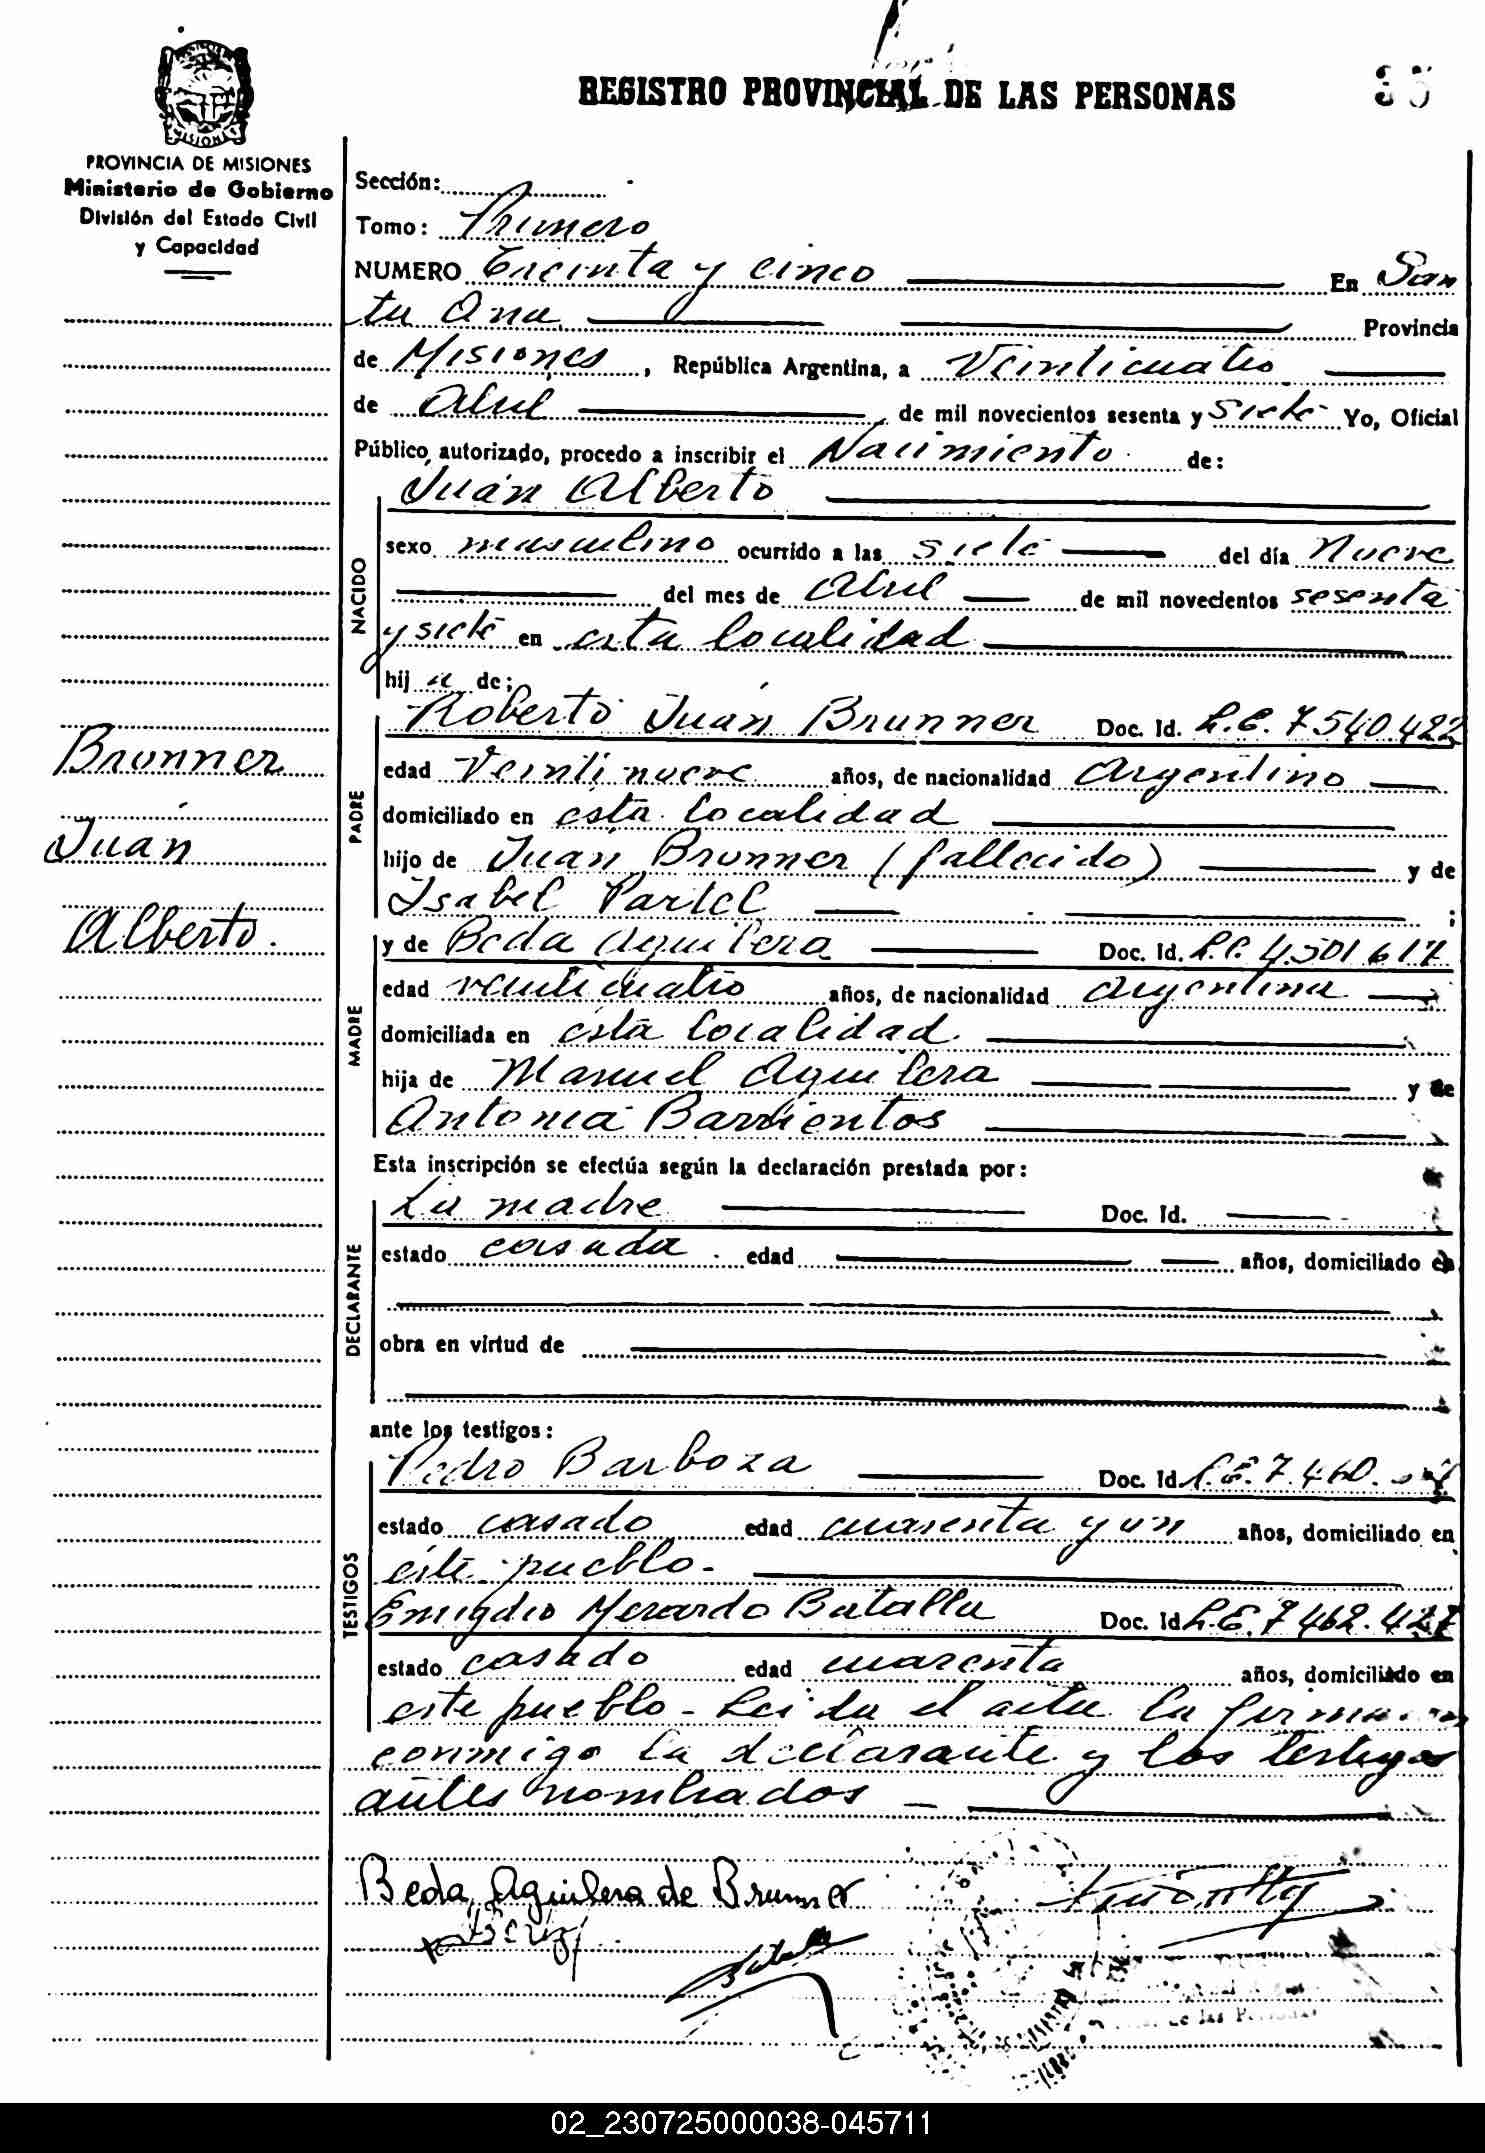 REGISTRO PROVINCIAL DE LAS PERSONAS
35
PROVINCIA DE MISIONES
Ministerio de Gobierno
División del Estado Civil
y Capacidad
Brunner
Juán
Alberto.
Sección:
Tomo: Primero
NUMERO Treinta y cinco En San
ta Ana Provincia
de Misiones, República Argentina, a Veinticuatro
de Abril de mil novecientos sesenta y siete Yo, Oficial
Público, autorizado, procedo a inscribir el Nacimiento de:
Juán Alberto
NACIDO
sexo masculino ocurrido a las siete del día Nueve
del mes de Abril de mil novecientos sesenta
y siete en esta localidad
hijo de:
PADRE
Roberto Juán Brunner Doc. Id. L.E. 7.540.422
edad Veintinueve años, de nacionalidad Argentino
domiciliado en esta localidad
hijo de Juán Brunner (fallecido) y de
Isabel Partel ;
MADRE
y de Beda Aguilera Doc. Id. L.C. 4.501.617
edad veinticuatro años, de nacionalidad argentina
domiciliada en esta localidad
hija de Manuel Aguilera y de
Antonia Barrientos
Esta inscripción se efectúa según la declaración prestada por:
DECLARANTE
La madre Doc. Id.
estado casada edad años, domiciliado en
obra en virtud de
ante los testigos:
TESTIGOS
Pedro Barboza Doc. Id. L.E. 7.460.
estado casado edad cuarenta y un años, domiciliado en
este pueblo-
Emigdio Merardo Batalla Doc. Id L.E. 7.462.427
estado casado edad cuarenta años, domiciliado en
este pueblo - Leida el acta la firman
conmigo la declarante y los testigos
antes nombrados -
Beda Aguilera de Brunner
de las Personas
02_230725000038-045711